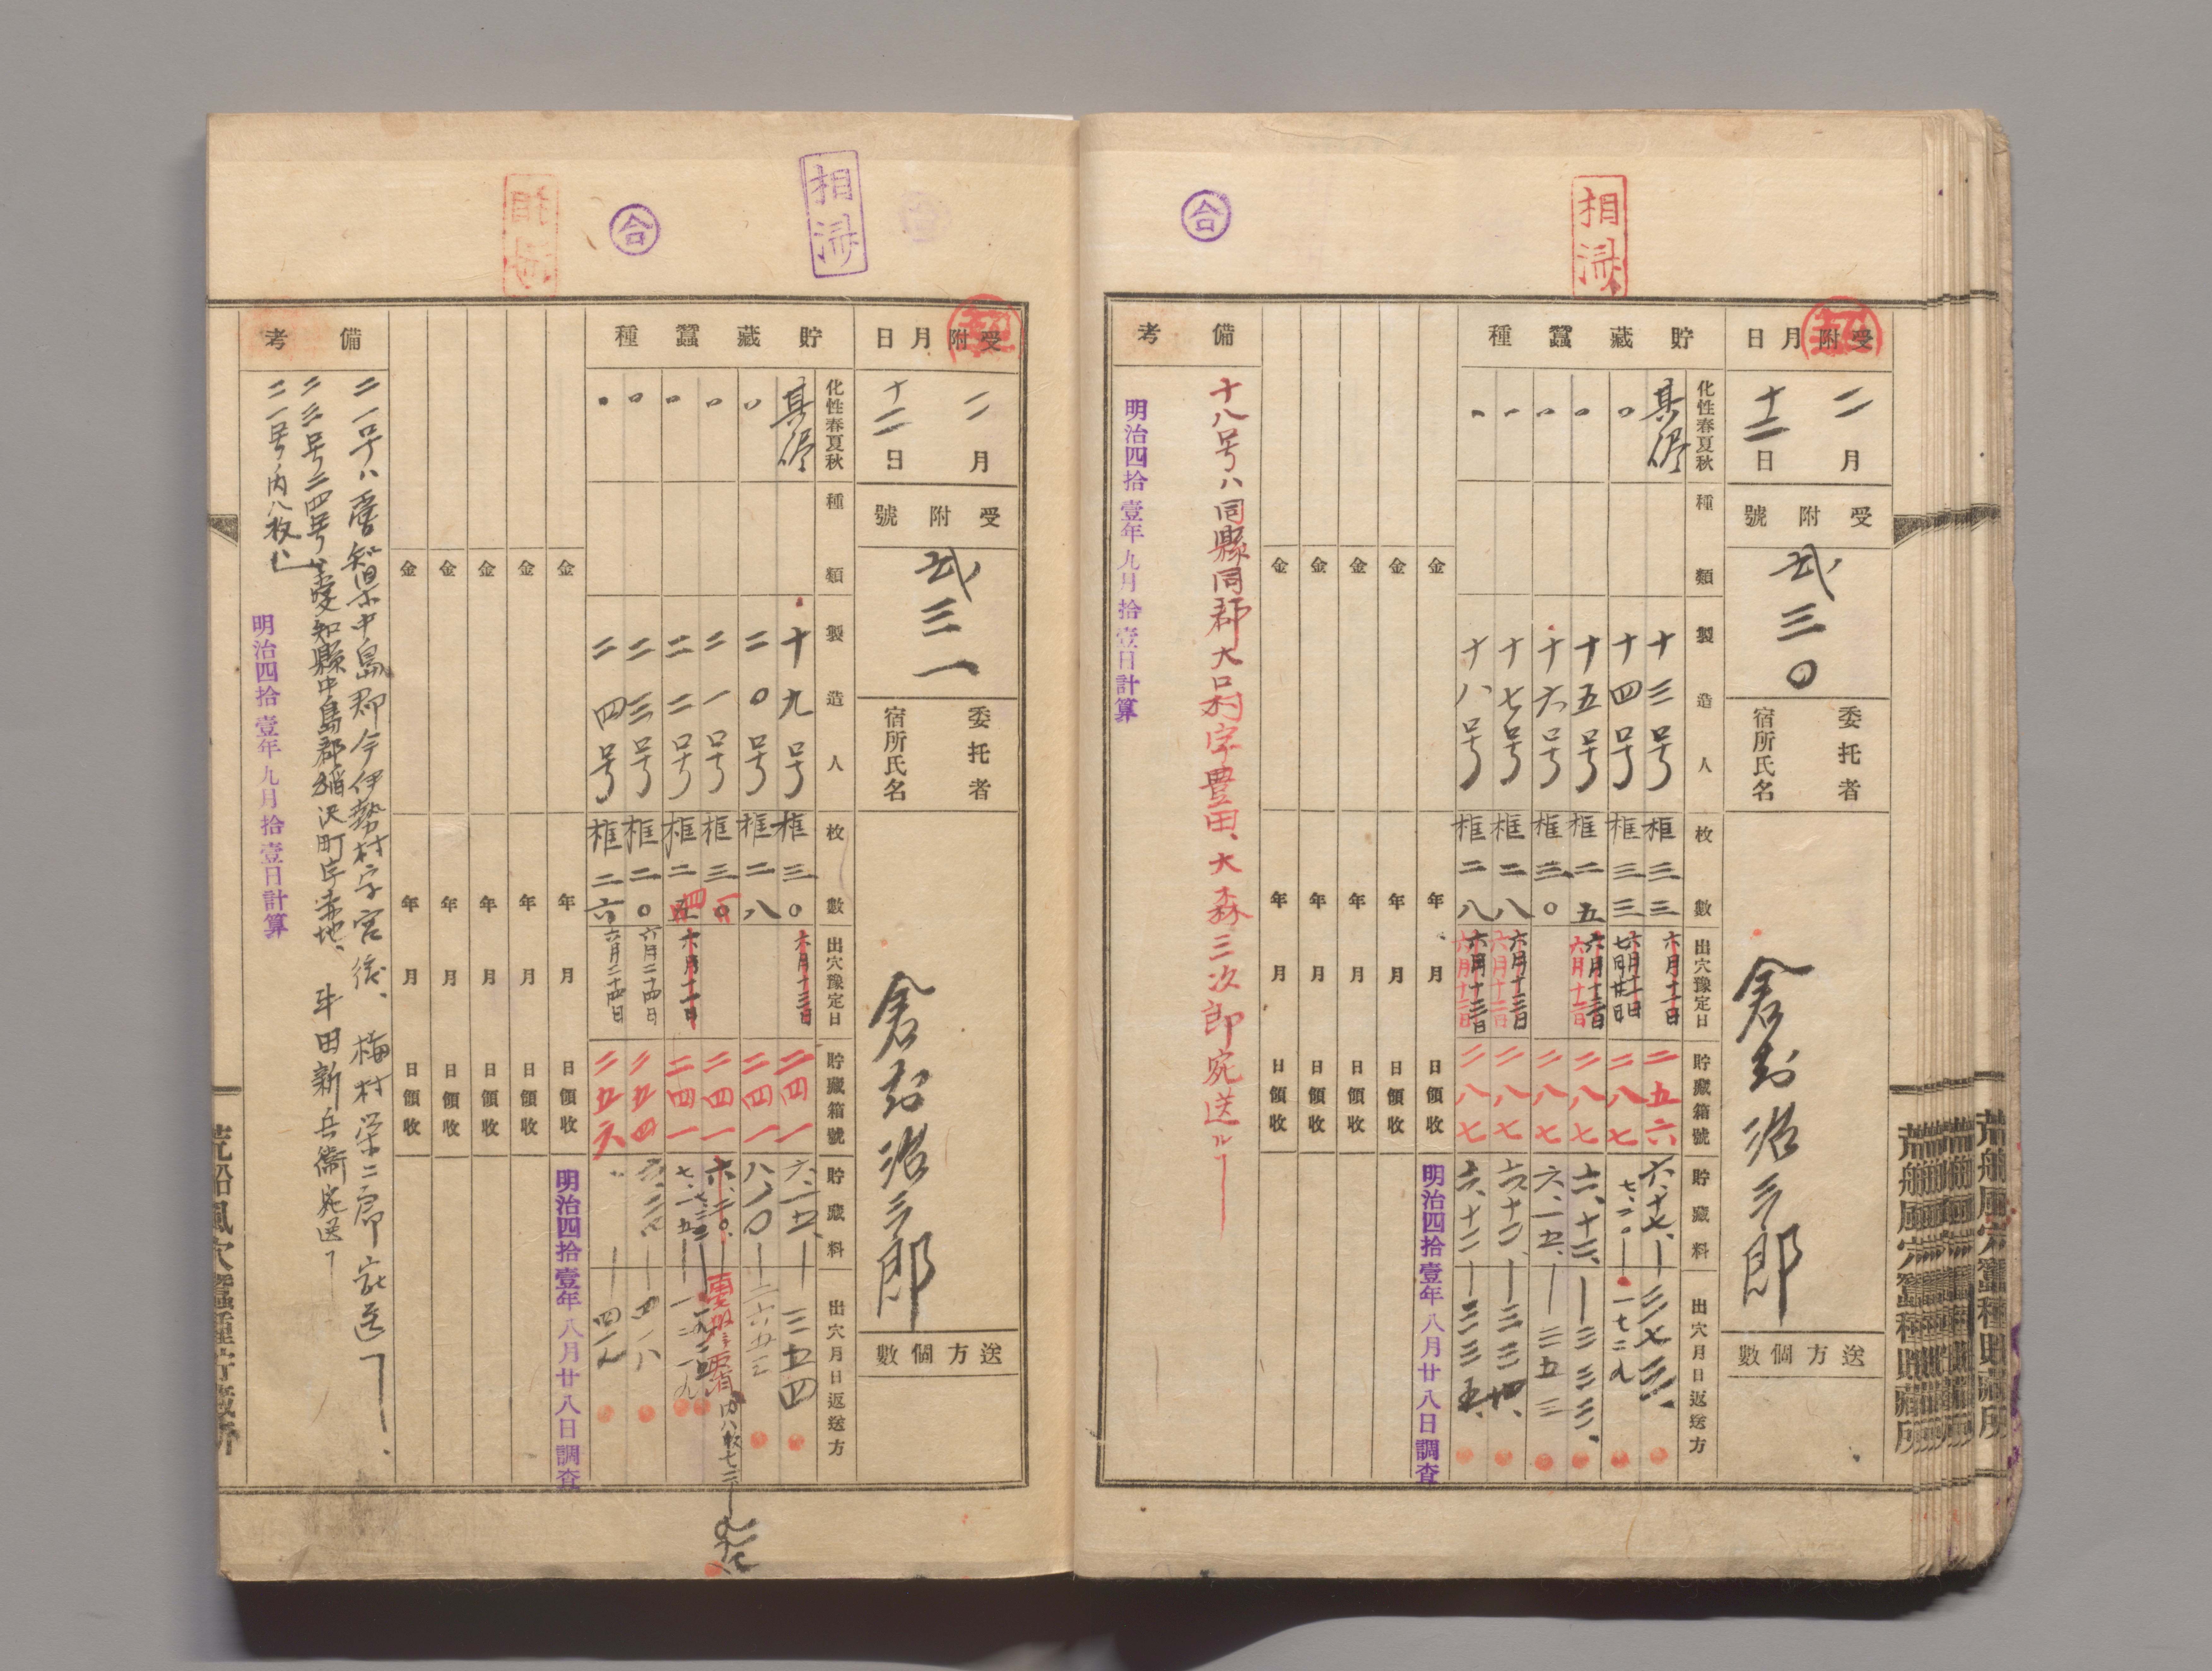 相済
合
受附月日
二月
十二日
受附號
弐三〇
委托者
宿所氏名
倉
治三郎
送方個數
貯藏蠶種
化性春夏秋
種類
製造人
枚數
出穴豫定日
貯藏箱號
貯藏料
出穴月日返送方
其侭
十三号
框三三
六月十一日
二五六
六、十七、
三七三、
十四号
框三三
二八七
七、二〇
一七二九
十五号
框二五
六月十二日
二八七
三三三、
十六号
框三〇
二八七
六、一五、
三五三
十七号
框二八
六月十三日
六月十二日
二八七
六、十二、
十八号
框二八
六月十三日
二八七
六、十二
三三五、
金 年 月 日領收
金 年 月 日領收
金 年 月 日領收
金 年 月 日領收
金 年 月 日領收
明治四拾壹年八月廿八日調査
備考
十八号ハ同縣同郡大口村字豊田、大森三次郎宛送ル
明治四拾壹年九月拾壹日計算
荒船風穴蠶種貯藏所
相済
合
受附月日
二月
十二日
受附號
弐三一
委托者
宿所氏名
倉
治三郎
送方個數
貯藏蠶種
化性春夏秋
種類
製造人
枚數
出穴豫定日
貯藏箱號
貯藏料
出穴月日返送方
其侭
十九号
框三〇
六月十三日
二四一
六、一五、
三五四
二〇号
框二八
二四一
八、一〇
二六五三
二一号
框三〇
二四一
六、二〇、
内八枚七三
二二号
框二五
四
六月十一日
二四一
七、一五
二三号
框二〇
六月二十四日
二五四
四一八
二四号
框二六
六月二十四日
二五六
四一九
金 年 月 日領收
金 年 月 日領收
金 年 月 日領收
金 年 月 日領收
金 年 月 日領收
明治四拾壹年八月廿八日調査
備考
二一号ハ愛知県中島郡今伊勢村字宮後、梅村栄二郎宛送
二三号二四号ハ愛知縣中島郡稲沢町字赤地、牛田新兵衛宛送
二一号ノ内八枚
明治四拾壹年九月拾壹日計算
荒船風穴蠶種貯藏所